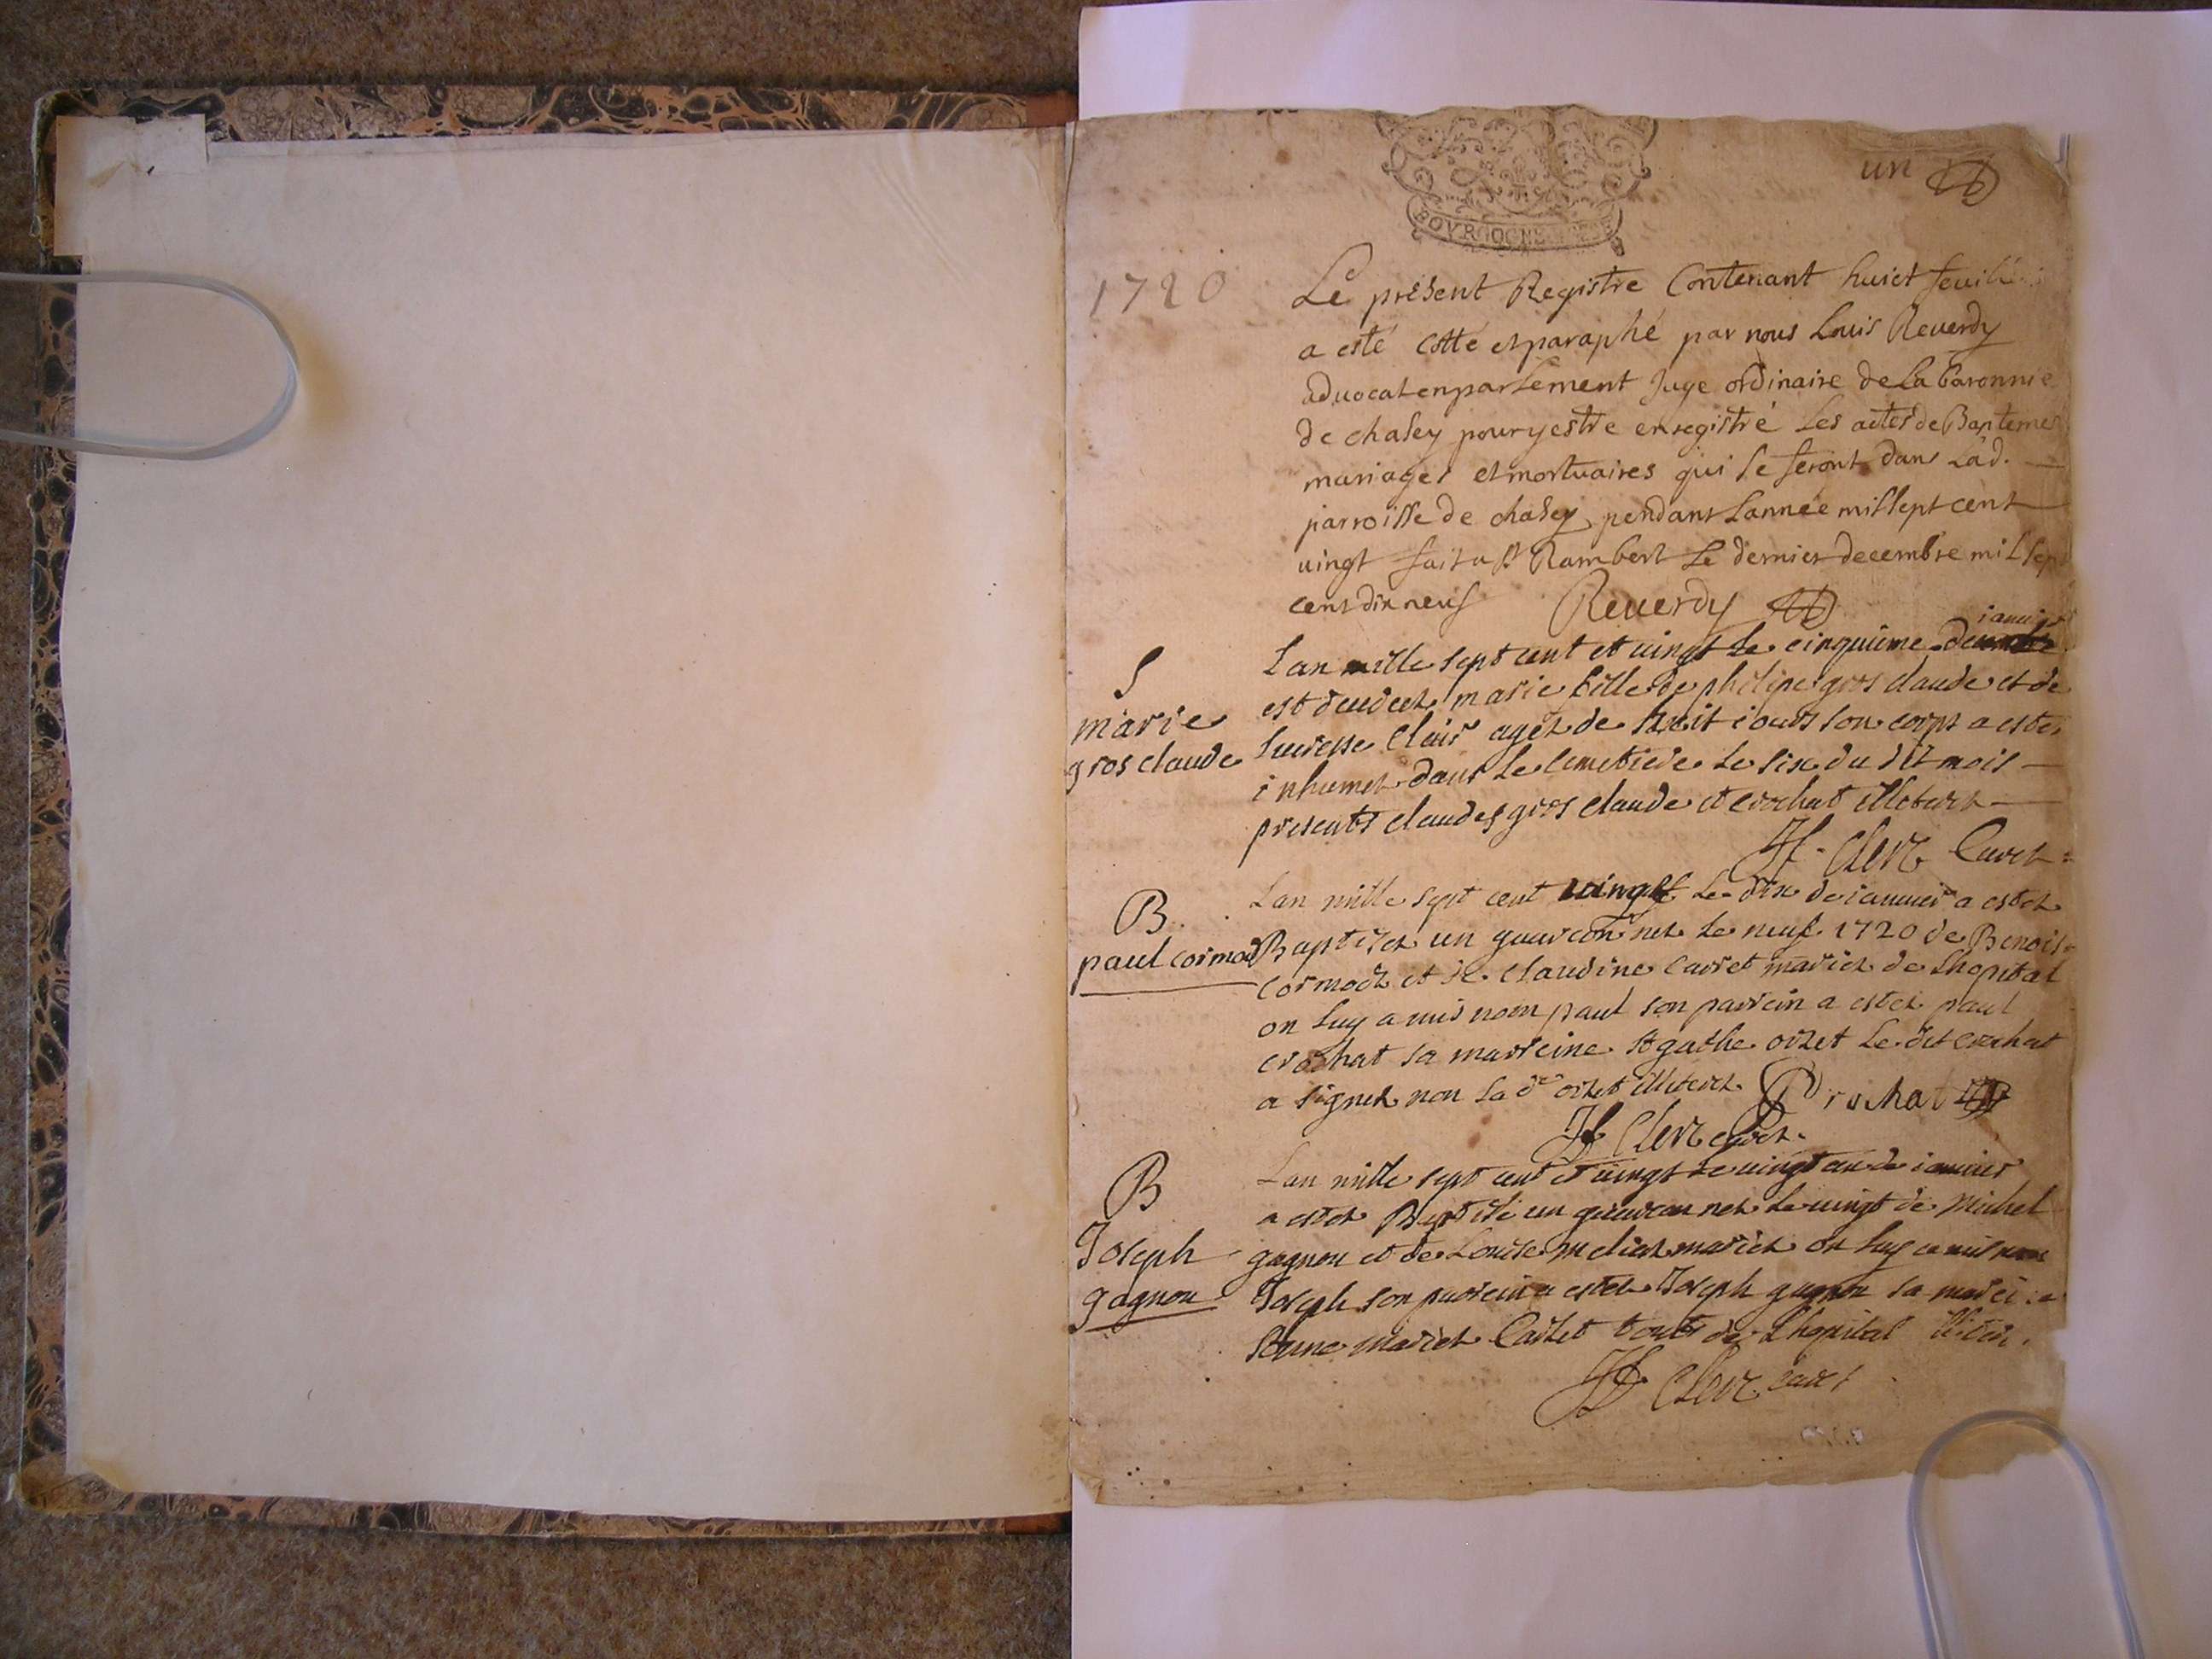 BOVRGOGNE
un
1720
Le présent Registre Contenant huict feuill
a esté cotté et paraphé par nous Louis Reverdy
advocat en parlement Juge ordinaire de La baronnie
de chasey pour y estre enregistré Les actes de Baptemes
mariages et mortuaires qui se feront dans Lad.
parroisse de chasey pendant Lannée mil sept cent
vingt fait a st Rambert Le dernier decembre mil sept
cent dix neuf Reverdy
janvier
S
marie
gros claude
Lan mille sept cent et vingt le cinquieme
est decedeez marie fille de philipe gros claude et de
Lucresse Clair agez de huit iours son corps a estez
inhumez dans le cemetiere le six du dit mois
presents claudes gros claude et crochat illeterez
Clerc Curez
B
paul cormod
Lan mille sept cent vingt Le dix de ianvier a estez
Baptisez un guarcon nez le neuf 1720 de Benoit
cormodz et de claudine Carret mariez de Lhopital
on luy a mis nom paul son parrein a estez paul
crochat sa marreine Agathe orset Le dit crochat
a signez non La de orset illiterez Crochat
Clerc curez
B
Joseph
gagnon
Lan mille sept cent et vingt le vingt un de ianvier
a estez Baptisé un guarcon nez le vingt de Michel
gagnon et de Louise mariez on luy a mis nom
Joseph son parrein a estez Joseph gagnon sa marreine
mariez touts de Lhopital
Clerc curez